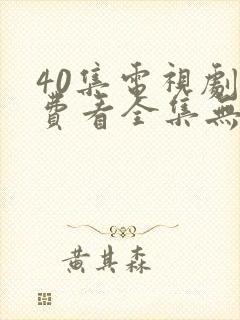 40集電視劇
費看全集無
黃其森